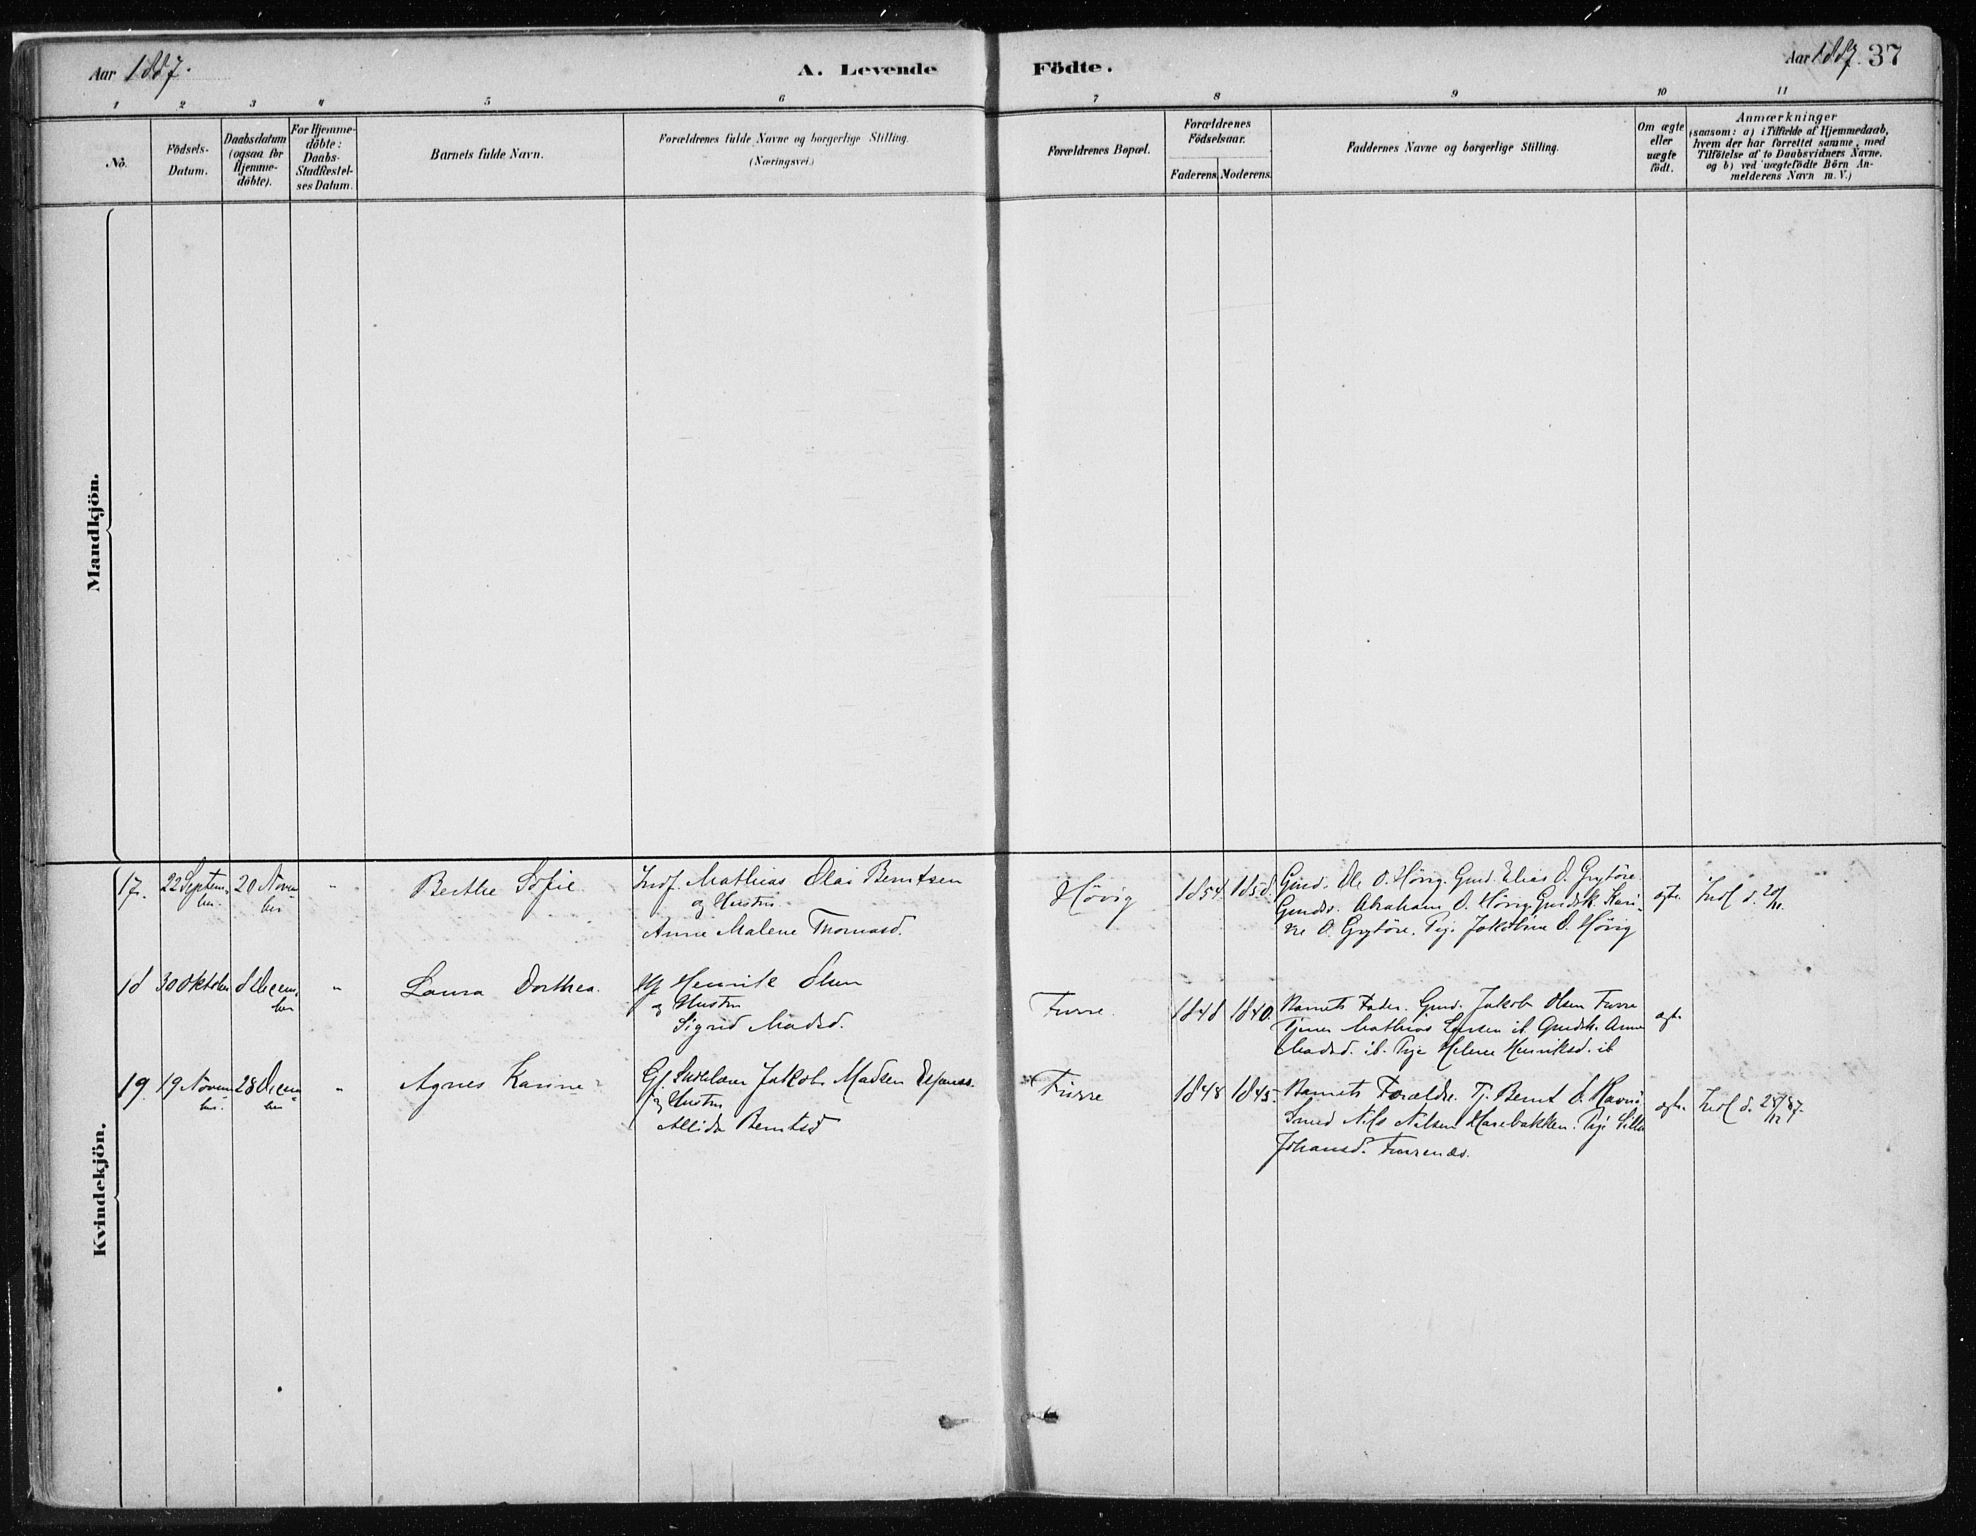 Aar 1887.
A. Levende Födte.
Aar 1887. 37
1 2 3 4 5 6 7 8 9 10 11
No.
Födsels-
Datum.
Daabsdatum
(ogsaa for
Hjemme-
döbte).
For Hjemme-
döbte:
Daabs-
Stadfæstel-
ses Datum.
Barnets fulde Navn.
Forældrenes fulde Navne og borgerlige Stilling.
(Næringsvei.)
Forældrenes Bopæl.
Forældrenes
Födselsaar.
Faderens. Moderens.
Faddernes Navne og borgerlige Stilling.
Om ægte
eller
uægte
födt.
Anmærkninger
(saasom: a) i Tilfælde af Hjemmedaab,
hvem der har forrettet samme, med
Tilföielse af to Daabsvidners Navne.
og b) ved uægtefödte Börn An-
melderens Navn m. V.)
Mandkjön.
Kvindekjön.
17. 22 Septem-
ber.
20 Novem-
ber
"
Berthe Sofie
Indf. Mathias Olai Berntsen
og Hustru
Anne Malene Thomasd.
Høvig
1854. 1858.
Gmd. Ole O. Høvig. Gmd. Elias O. Grytøre.
Gmds. Abraham O. Høvig. Gmdsk. Kari-
ne O. Grytøre. Pige Jakobine O. Høvig
ægte.
Indl. d. 20/11.
18 30 Oktober
8 Decem-
ber
"
Laura Dorthea.
Henrik Olsen
og Hustru
Sigrid Madsd.
Furre.
1848 1840.
Barnets Fader. Gmd. Jakob Olsen Furre
Tjener Mathias Larsen ib. Gmdsk. Anne
Madsd. ib. Pige Helene Henriksd. ib
ægte
19. 19 Novem-
ber.
28 Decem-
ber
"
Agnes Karine
Gf. Jakob Madsen
og Hustru
Berntsd
Furre
1848 1845.
Barnets Forældre. Tj. Bernt O.
Smed Nils Nilsen Harebakken. Pige
Johansd. Furrenæs.
ægte.
Indl d. 28/12 87.